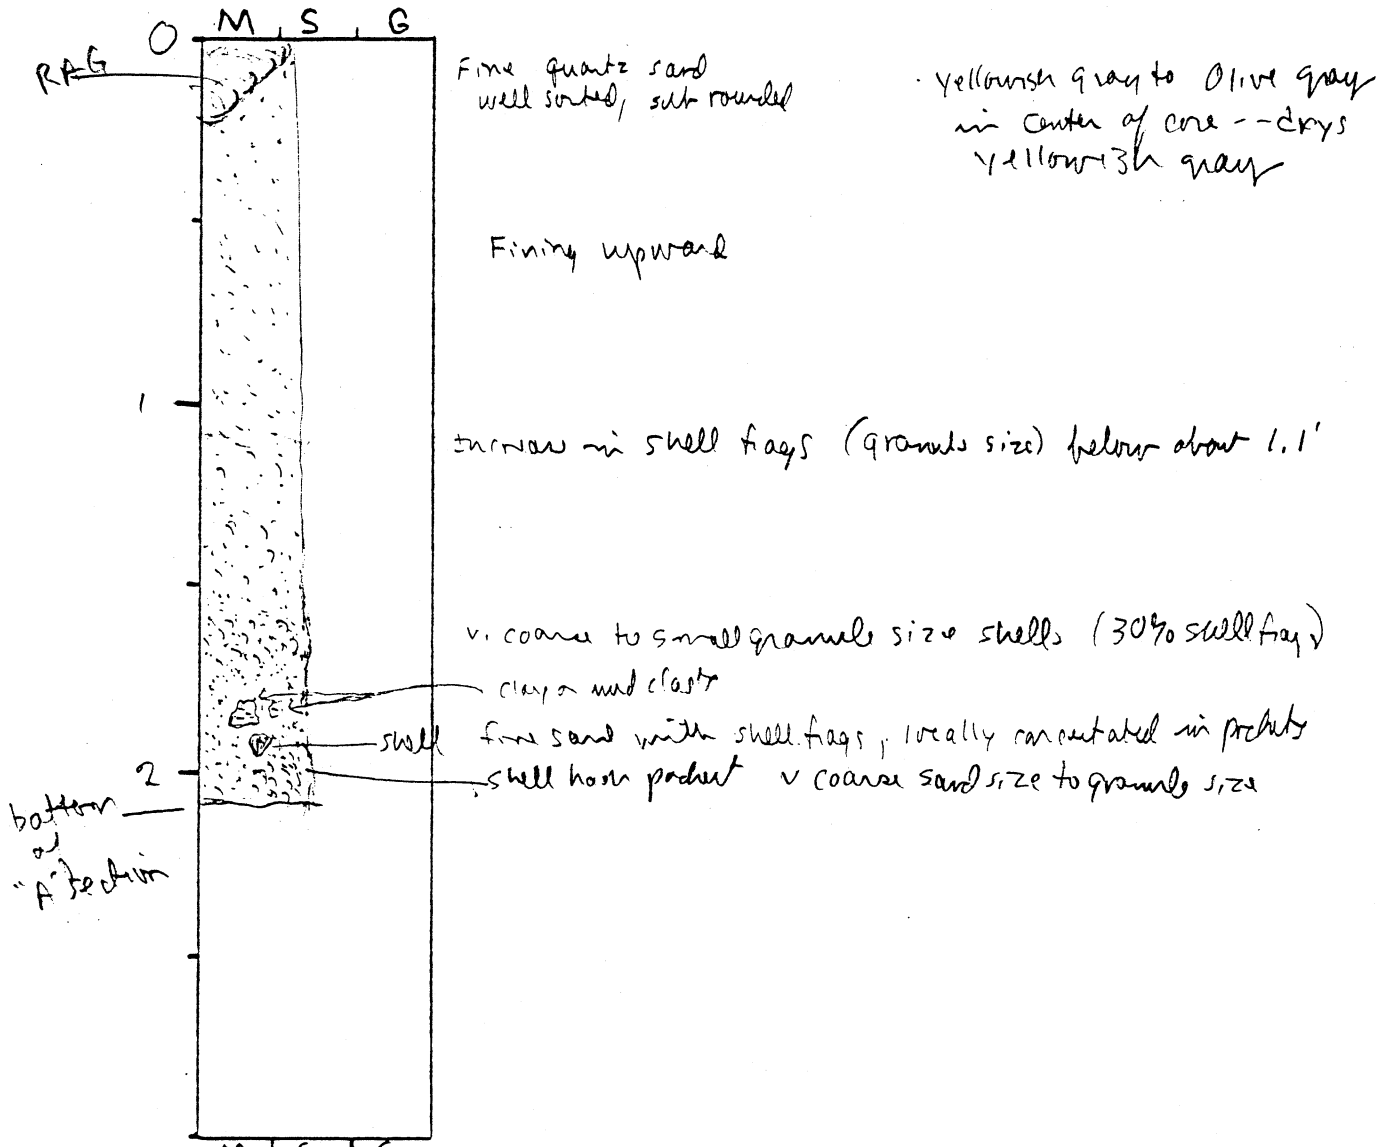 M S G
0
RAG
Fine quartz sand
well sorted, sub rounded
yellowish gray to Olive gray
in center of core -- drys
yellowish gray
Fining upward
1
Increase in shell frags (granule size) below about 1.1'
v. coarse to small granule size shells (30% shell frags)
clay or mud clasts
shell
fine sand with shell frags, locally concentrated in pockets
2
shell hash pocket v coarse sand size to granule size
bottom
of
"A" section
M S G